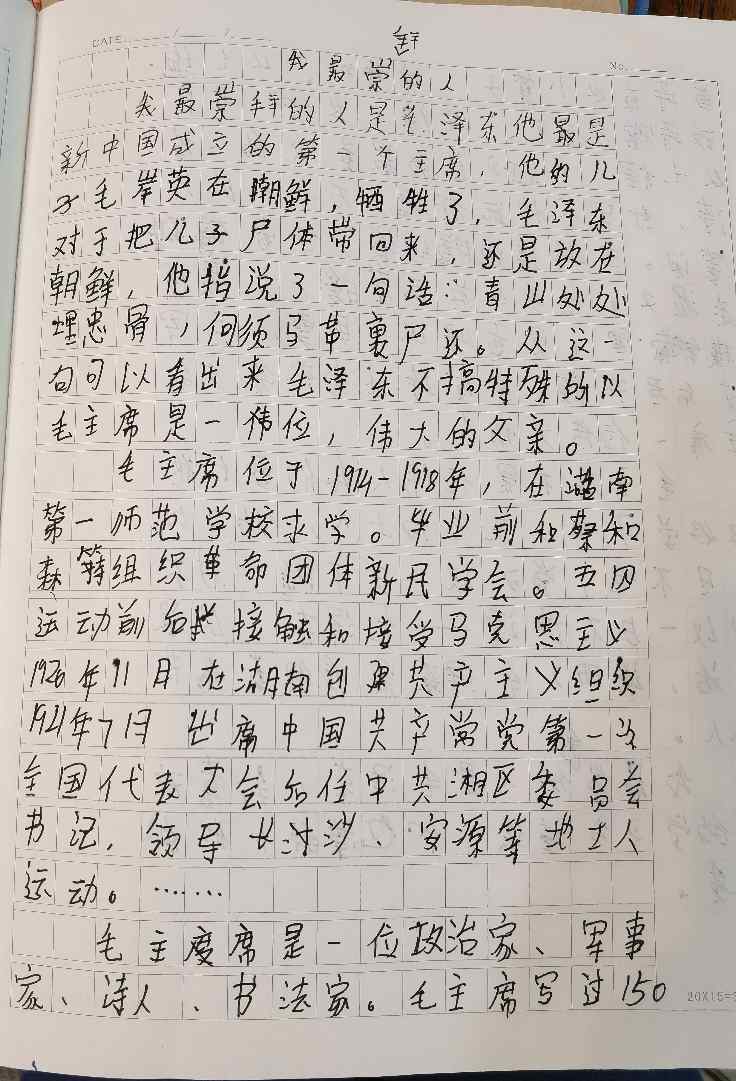 DATE
No.
我最崇的人
我最崇拜的人是毛泽东他最是
新中国成立的第一个主席，他的儿
子毛岸英在朝鲜，牺牲了，毛泽东
对于把儿子尸体带回来，还是放在
朝鲜，他指说了一句话：青山处处
埋忠骨，何须马革裹尸还。从这一
句可以看出来毛泽东不搞特殊所以
毛主席是一伟位，伟大的父亲。
毛主席位于1914-1918年，在湖南
第一师范学校求学。毕业前和蔡和
森等组织革命团体新民学会。五四
运动前后接触和接受马克思主义
1920年11月在湖南创建共产主义组织
1921年7月出席中国共产党第一次
全国代表大会后任中共湘区委员会
书记，领导长沙、安源等地工人
运动。……
毛主度席是一位政治家、军事
家、诗人、书法家。毛主席写过150
20X15=3